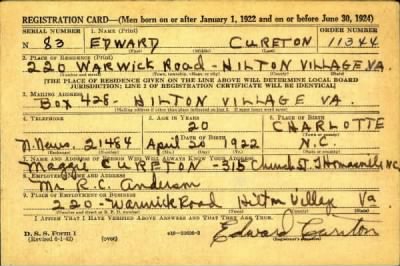 REGISTRATION CARD—(Men born on or after January 1, 1922 and on or before June 30, 1924)
SERIAL NUMBER 1. NAME (Print) ORDER NUMBER
N 83 EDWARD CURETON 11344
(First) (Middle) (Last)
2. PLACE OF RESIDENCE (Print)
220 WARWICK ROAD - HILTON VILLAGE VA.
(Number and street) (Town, township, village, or city) (County) (State)
[THE PLACE OF RESIDENCE GIVEN ON THE LINE ABOVE WILL DETERMINE LOCAL BOARD
JURISDICTION; LINE 2 OF REGISTRATION CERTIFICATE WILL BE IDENTICAL]
3. MAILING ADDRESS
Box 428 - HILTON VILLAGE VA.
4. TELEPHONE 5. AGE IN YEARS 6. PLACE OF BIRTH
20 CHARLOTTE
DATE OF BIRTH (Town or county)
N. News. 21484 April 20 1922 N.C.
(Exchange) (Number) (Mo.) (Day) (Yr.) (State or country)
7. NAME AND ADDRESS OF PERSON WHO WILL ALWAYS KNOW YOUR ADDRESS
CURETON - 315 Church St. Thomasville N.C.
8. EMPLOYER'S NAME AND ADDRESS
Mr. R.C. Anderson
9. PLACE OF EMPLOYMENT OR BUSINESS
220 - Warwick Road Hilton Village Va
(Number and street or R. F. D. number) (Town) (County) (State)
I AFFIRM THAT I HAVE VERIFIED ABOVE ANSWERS AND THAT THEY ARE TRUE.
D. S. S. Form 1
(Revised 6-1-42) (over)
Edward Cureton
(Registrant's signature)